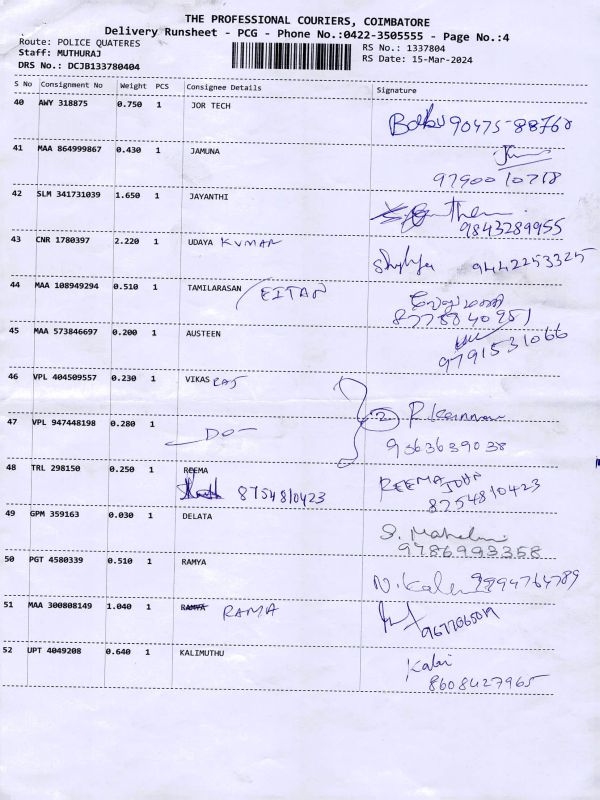 THE PROFESSIONAL COURIERS, COIMBATORE
Delivery Runsheet - PCG - Phone No.:0422-3505555 - Page No.:4
Route: POLICE QUATERES
RS No.: 1337804
Staff: MUTHURAJ
RS Date: 15-Mar-2024
DRS No.: DCJB133780404
S No Consignment No Weight PCS Consignee Details Signature
40 AWY 318875 0.750 1 JOR TECH
90475-88760
41 MAA 864999867 0.430 1 JAMUNA
97900 10718
42 SLM 341731039 1.650 1 JAYANTHI
9843289955
43 CNR 1780397 2.220 1 UDAYA KUMAR
9442253325
44 MAA 108949294 0.510 1 TAMILARASAN EITAN
8778840951
45 MAA 573846697 0.200 1 AUSTEEN
9791531066
46 VPL 404509557 0.230 1 VIKAS RAJ
2 P. Kannan
47 VPL 947448198 0.280 1 —DO—
9363639038
48 TRL 298150 0.250 1 REEMA
8754810423
REEMA JOHN
8754810423
49 GPM 359163 0.030 1 DELATA
9786993358
50 PGT 4580339 0.510 1 RAMYA
N. Kala 9894764789
51 MAA 300808149 1.040 1 RAMA
9677065019
52 UPT 4049208 0.640 1 KALIMUTHU
Kalai
8608427965